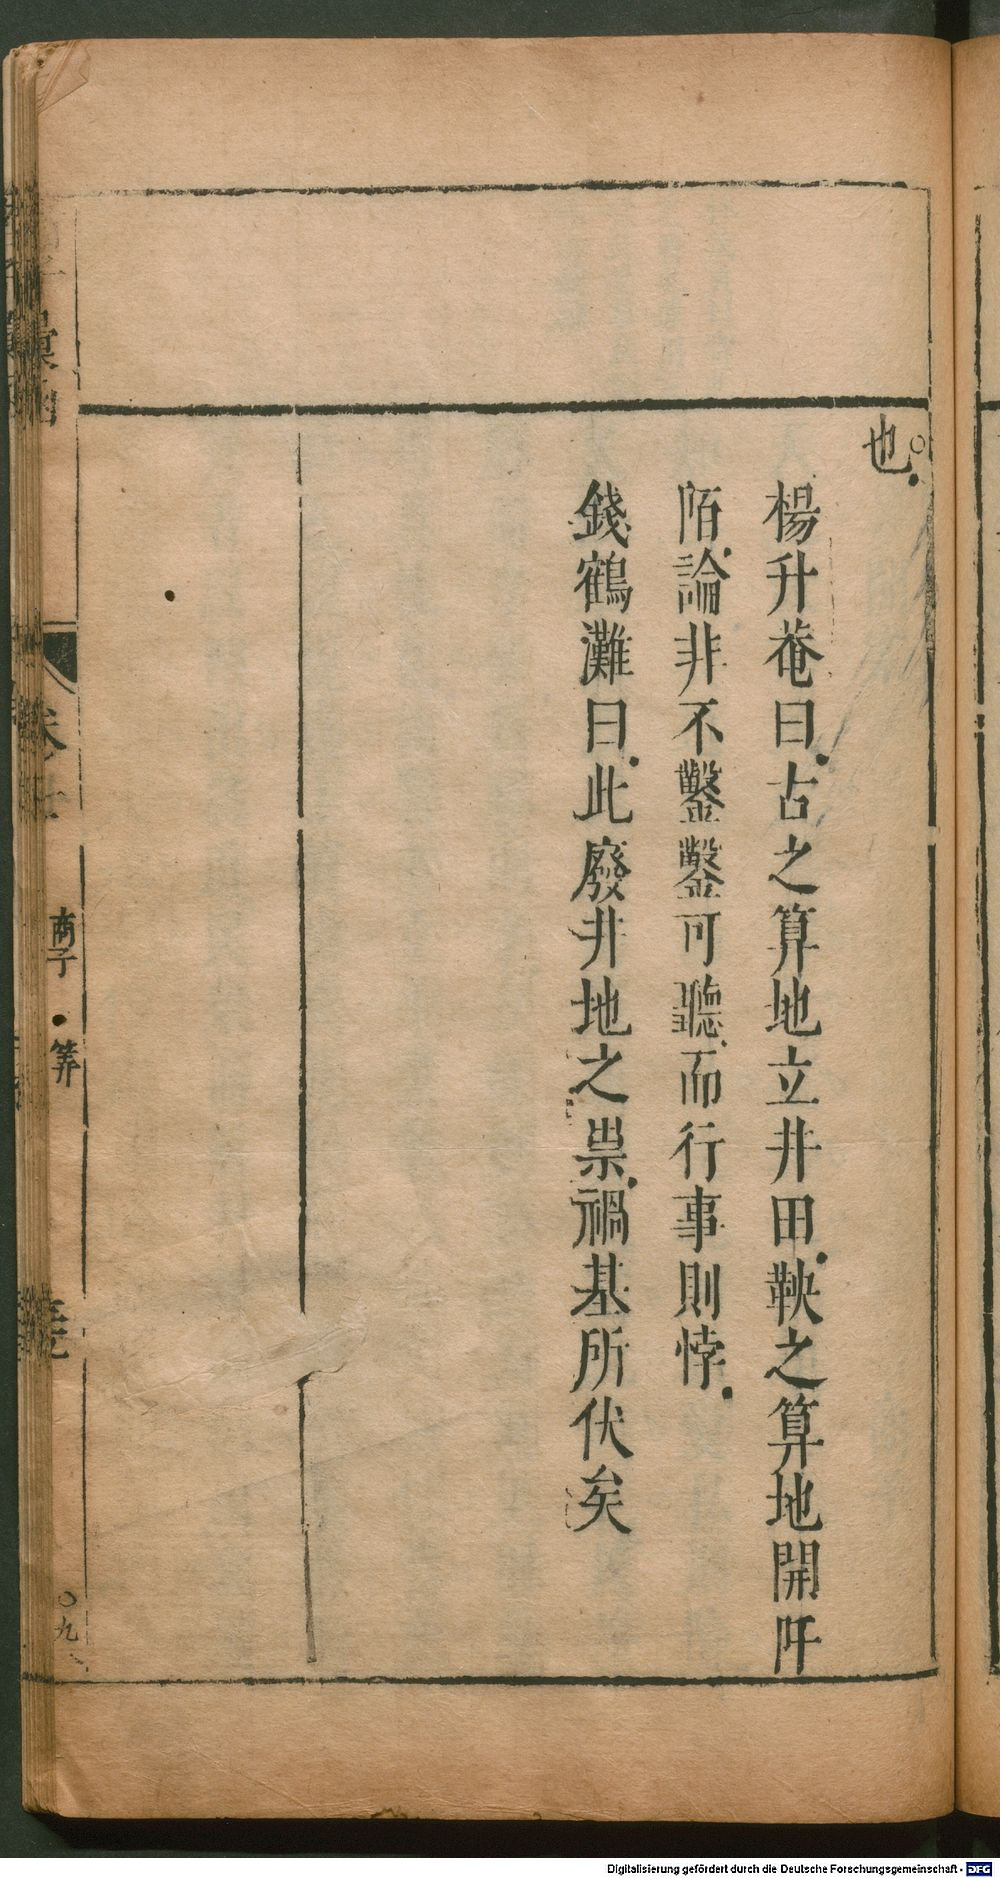 也
楊升菴曰古之算地立井田鞅之算地開阡
陌論非不鑿鑿可聽而行事則悖
錢鶴灘曰此廢井地之祟禍基所伏矣
商子
筭
九
Digitalisierung gefördert durch die Deutsche Forschungsgemeinschaft - DFG